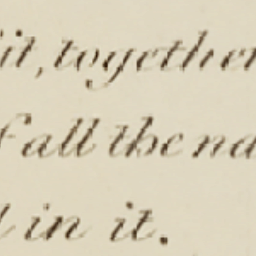 it, together
f all the na
in it.